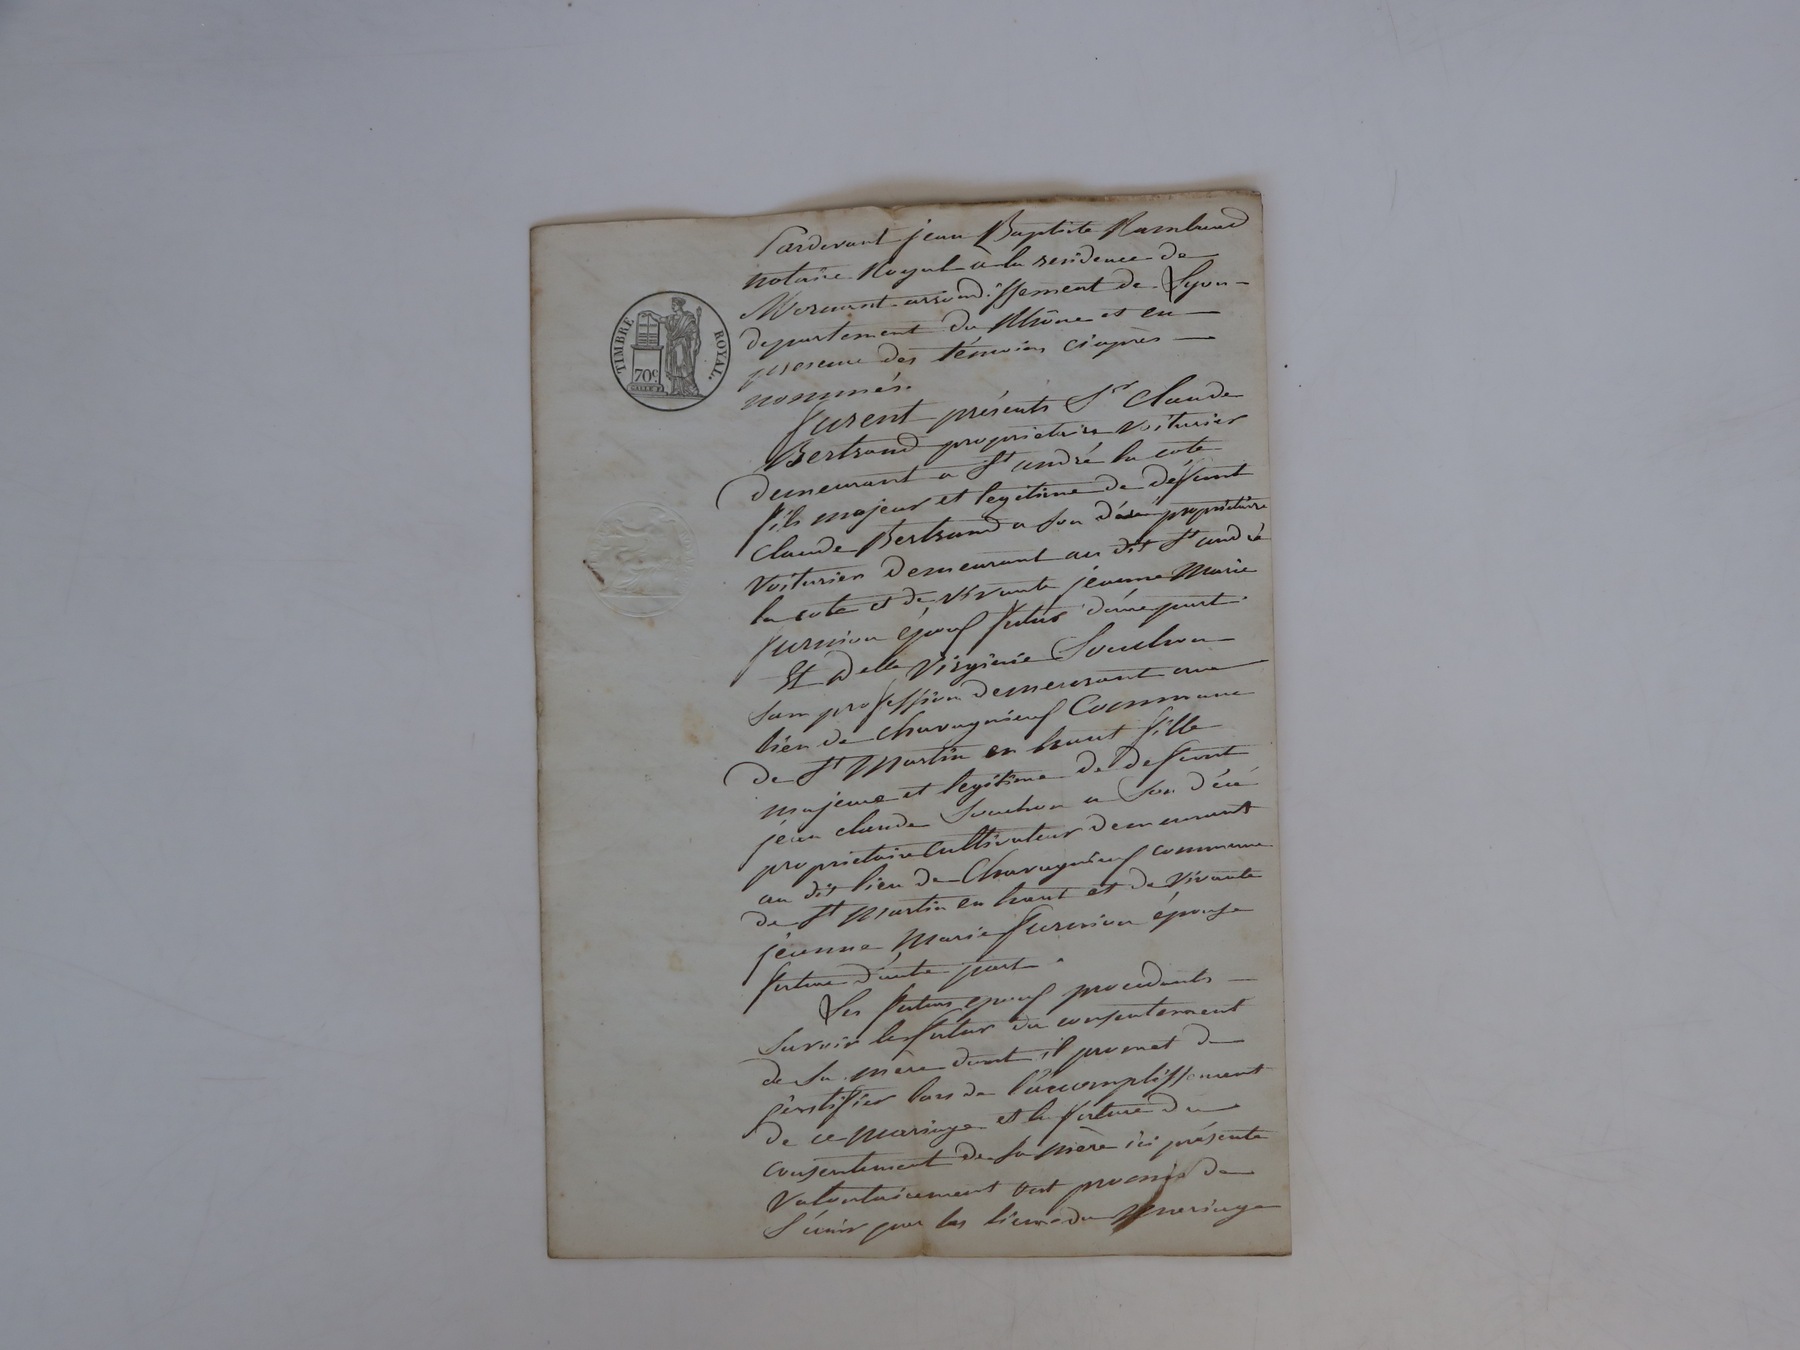 TIMBRE ROYAL.
70c
Pardevant jean Baptiste Rambaud
notaire Royal à la residence de
Mornant arrondissement de Lyon
departement du Rhône et en
presence des témoins ciaprès
nommés.
furent présents Sr Claude
Bertrand propriétaire Voiturier
demeurant a St andré la cote
fils majeur et legitime de deffunt
Claude Bertrand a son décé propriétaire
Voiturier demeurant au dit St andré
la cote et de vivante jeanne Marie
furnion époux futur d'une part.
Et Delle Virginie Souchon
san profession demeurant au
lieu de Chavagnieux Commune
de St Martin en haut fille
majeure et legitime de deffunt
jean claude Souchon a son décé
propriétaire Cultivateur demeurant
au dit lieu de Chavagnieux commune
de St Martin en haut et de vivante
jeanne Marie furnion épouse
future d'autre part.
Les futurs epoux procédants
Savoir le futur du consentement
de sa mère dont il promet de
justifier lors de l'accomplissement
de ce mariage et la future du
consentement de sa mère ici présente
Volontairement ont promis de
S'unir par les liens du Mariage